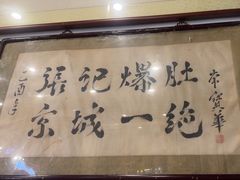 張記爆肚
京城一絶
乙酉年
常寶華